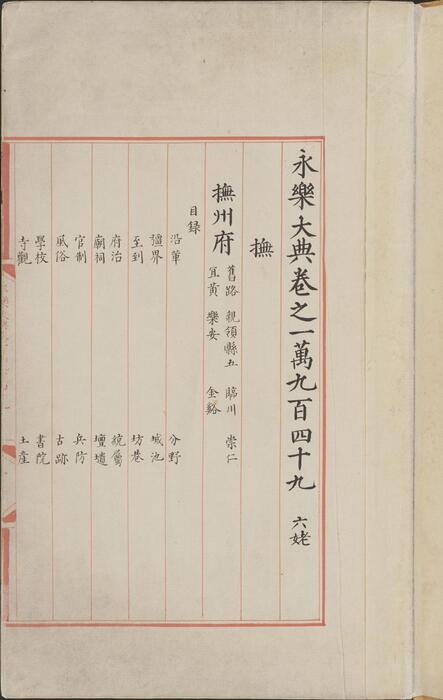 永樂大典卷之一萬九百四十九 六姥
撫
撫州府 舊路 親領縣五 臨川 崇仁
宜黃 樂安 金谿
目録
沿革 分野
疆界 城池
至到 坊巷
府治 統屬
廟祠 壇壝
官制 兵防
風俗 古跡
學校 書院
寺觀 土產